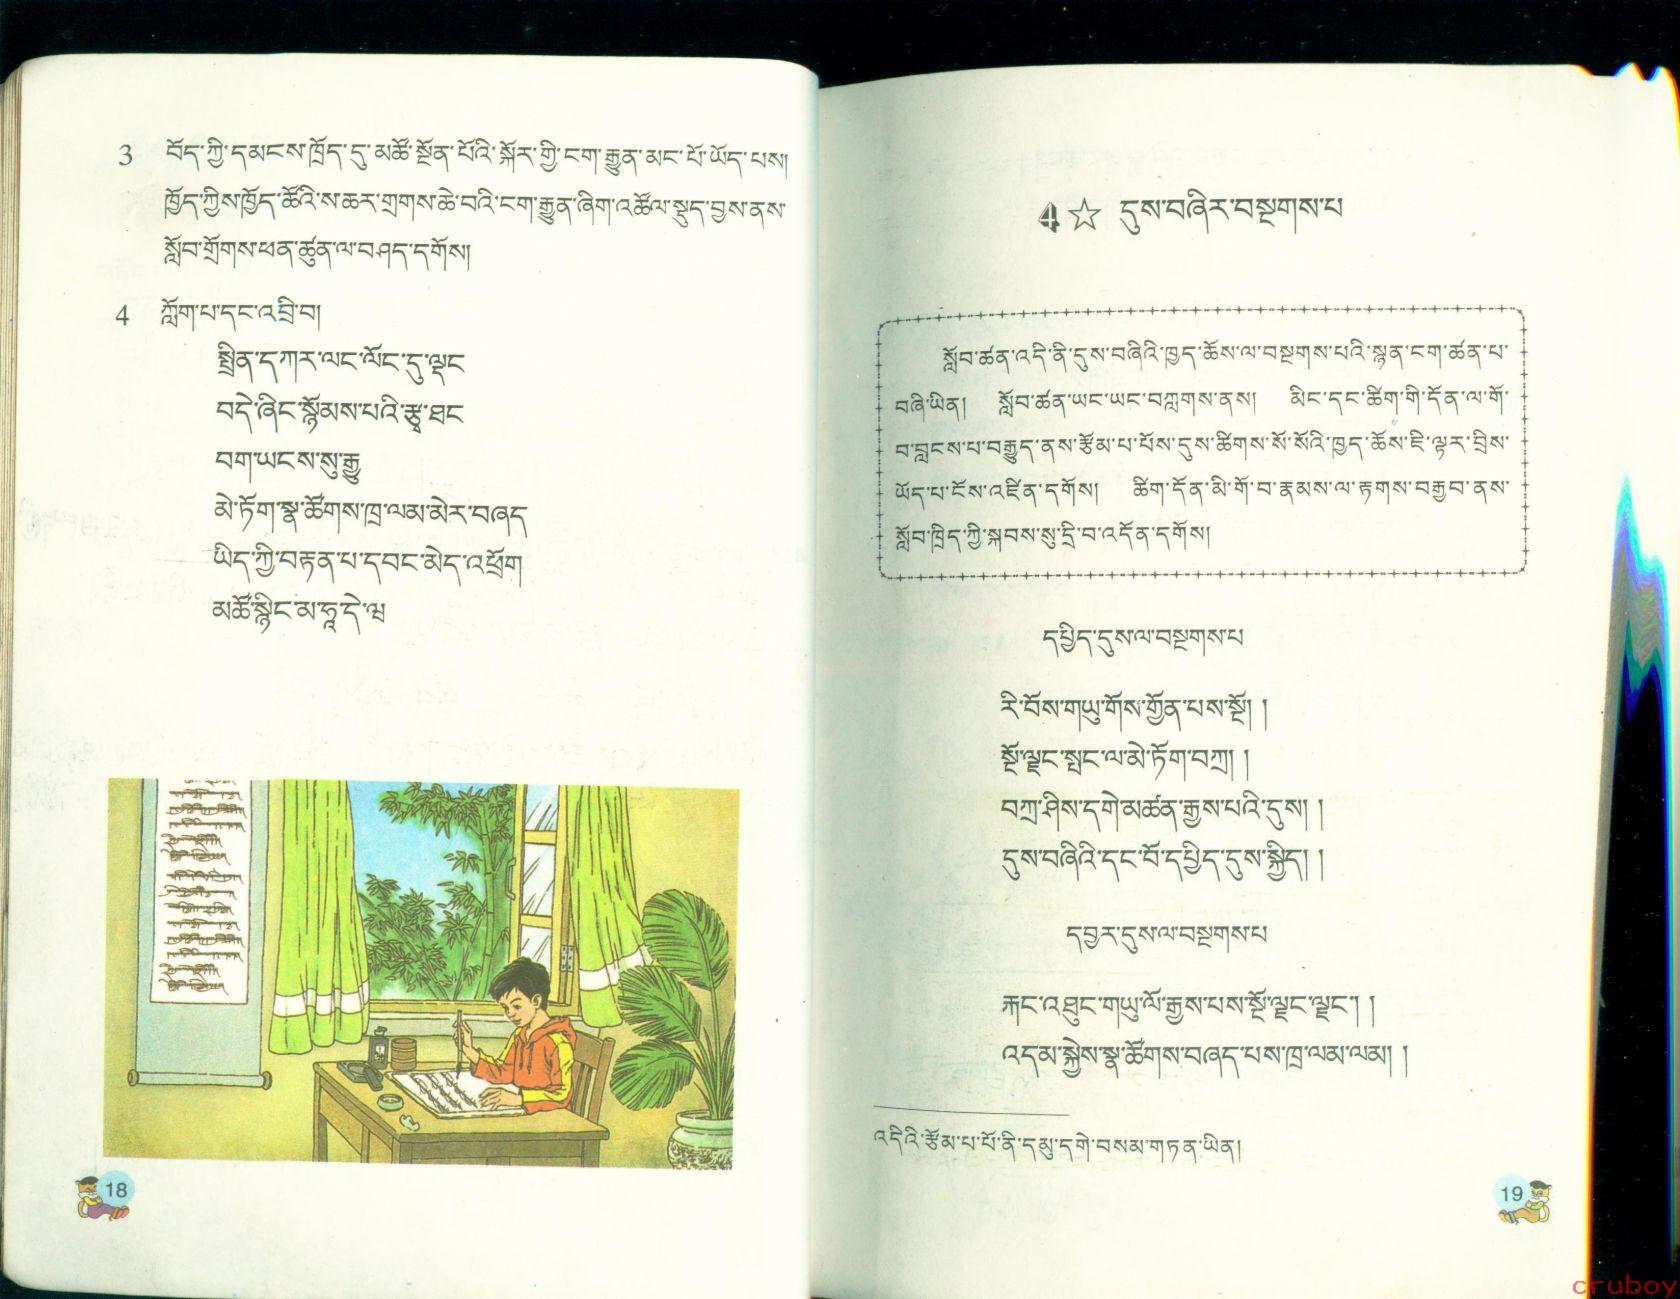 3 བོད་ཀྱི་དམངས་ཁྲོད་དུ་མཚོ་སྔོན་པོའི་སྐོར་གྱི་ངག་རྒྱུན་མང་པོ་ཡོད་པས།
ཁྱོད་ཀྱིས་ཁྱོད་ཚོའི་ས་ཆར་གྲགས་ཆེ་བའི་ངག་རྒྱུན་ཞིག་འཚོལ་སྡུད་བྱས་ནས་
སློབ་གྲོགས་ཕན་ཚུན་ལ་བཤད་དགོས།
4 ཀློག་པ་དང་འབྲི་བ།
སྤྲིན་དཀར་ལང་ལོང་དུ་ལྡང
བདེ་ཞིང་སྙོམས་པའི་རྩྭ་ཐང
བག་ཡངས་སུ་རྒྱུ
མེ་ཏོག་སྣ་ཚོགས་ཁྲ་ལམ་མེར་བཞད
ཡིད་ཀྱི་བརྟན་པ་དབང་མེད་འཕྲོག
མཚོ་སྙིང་མ་ཧཱ་དེ་ཝ
18
4 ☆ དུས་བཞིར་བསྔགས་པ
སློབ་ཚན་འདི་ནི་དུས་བཞིའི་ཁྱད་ཆོས་ལ་བསྔགས་པའི་སྙན་ངག་ཚན་པ་
བཞི་ཡིན། སློབ་ཚན་ཡང་ཡང་བཀླགས་ནས། མིང་དང་ཚིག་གི་དོན་ལ་གོ་
བ་བླངས་པ་བརྒྱུད་ནས་རྩོམ་པ་པོས་དུས་ཚིགས་སོ་སོའི་ཁྱད་ཆོས་ཇི་ལྟར་བྲིས་
ཡོད་པ་ངོས་འཛིན་དགོས། ཚིག་དོན་མི་གོ་བ་རྣམས་ལ་རྟགས་བརྒྱབ་ནས་
སློབ་ཁྲིད་ཀྱི་སྐབས་སུ་དྲི་བ་འདོན་དགོས།
དཔྱིད་དུས་ལ་བསྔགས་པ
རི་བོས་གཡུ་གོས་གྱོན་པས་སྔོ། །
སྔོ་ལྗང་སྤང་ལ་མེ་ཏོག་བཀྲ། །
བཀྲ་ཤིས་དགེ་མཚན་རྒྱས་པའི་དུས། །
དུས་བཞིའི་དང་པོ་དཔྱིད་དུས་སྐྱིད། །
དབྱར་དུས་ལ་བསྔགས་པ
རྐང་འཐུང་གཡུ་ལོ་རྒྱས་པས་སྔོ་ལྗང་ལྗང་། །
འདམ་སྐྱེས་སྣ་ཚོགས་བཞད་པས་ཁྲ་ལམ་ལམ། །
འདིའི་རྩོམ་པ་པོ་ནི་དམུ་དགེ་བསམ་གཏན་ཡིན།
19
cruboy